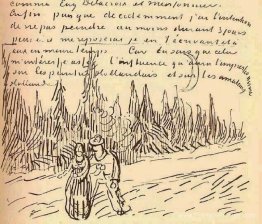 comme Eug Delacroix et Meissonnier.
Enfin puisque decidemment j'ai l'intention
de ne pas peindre au moins durant 3 jours
peut-être me reposerai je en t'ecrivant à
toi en meme temps Car tu sais que cela
m'interesse assez l'influence qu'aura l'impressionnisme
sur les peintres Hollandais et sur les amateurs
Hollande